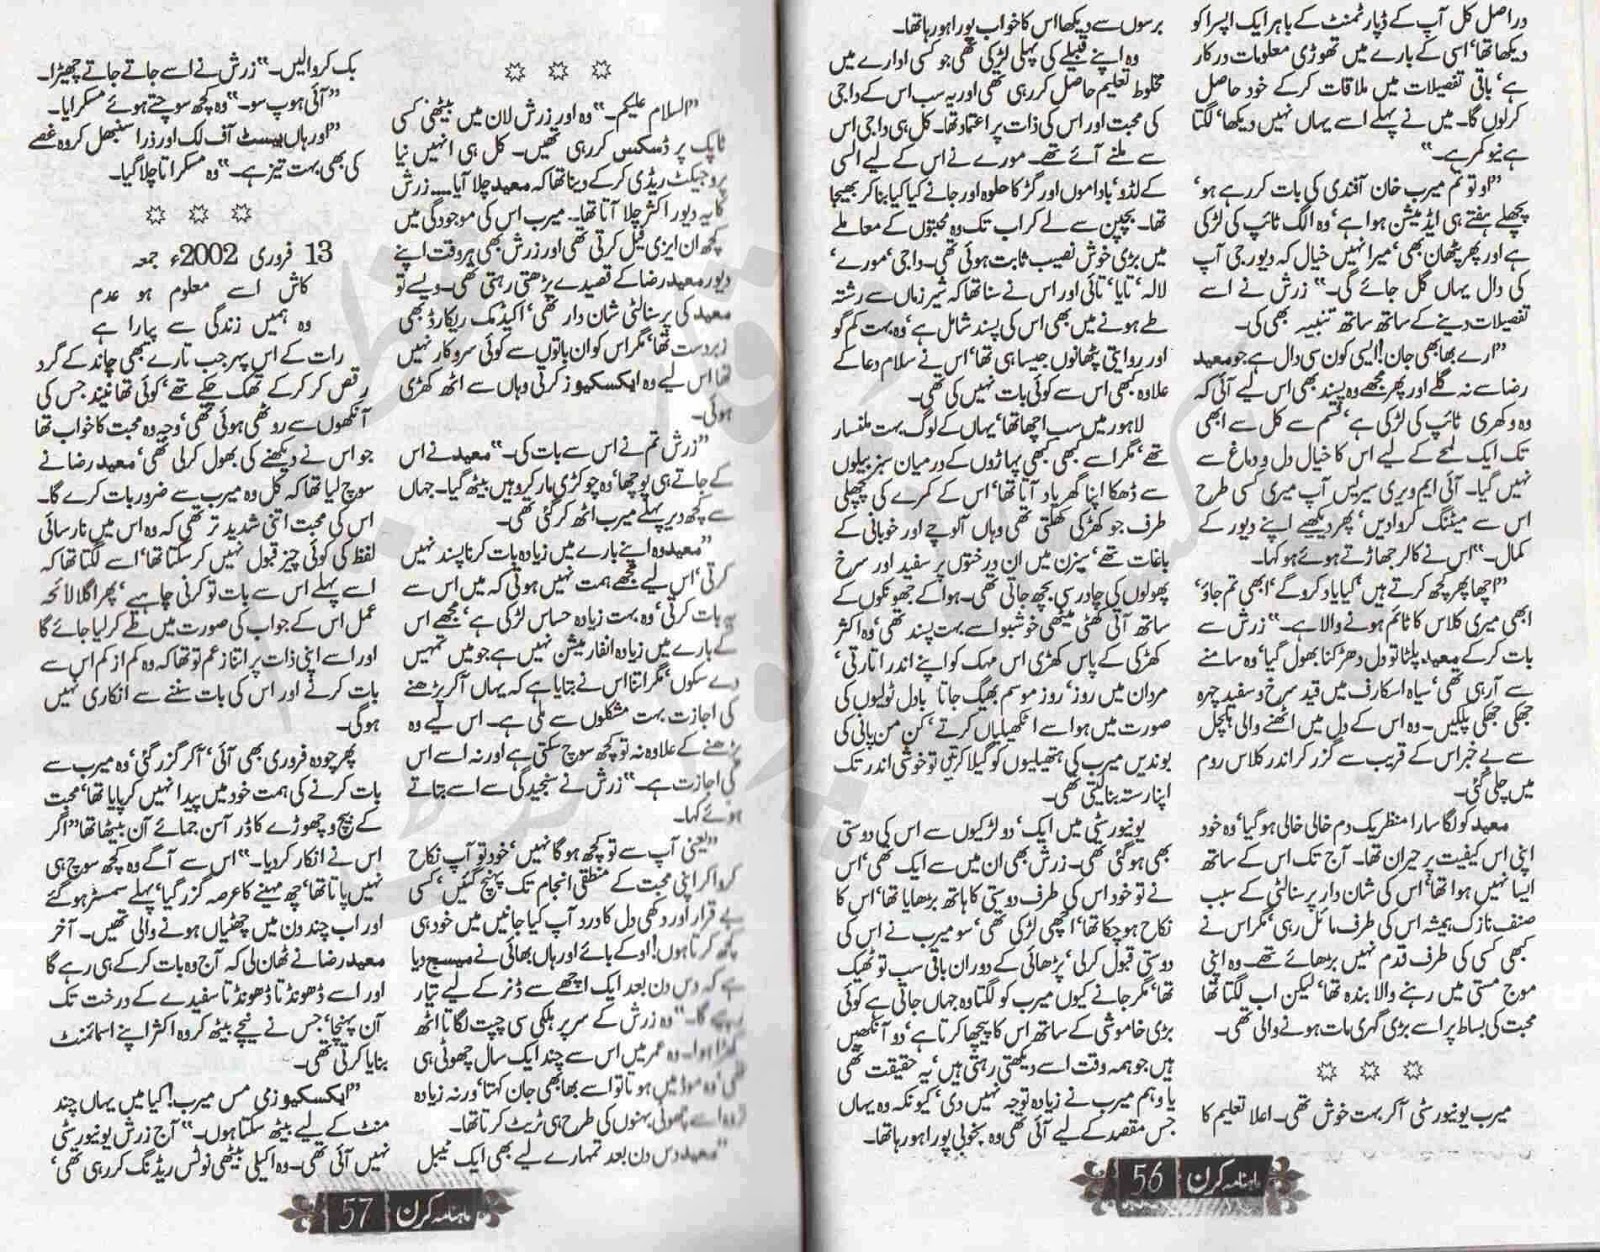 دراصل کل آپ کے ڈپارٹمنٹ کے باہر ایک اپسرا کو
دیکھا تھا‘ اسی کے بارے میں تھوڑی معلومات درکار
ہے‘ باقی تفصیلات میں ملاقات کرکے خود حاصل
کرلوں گا۔ میں نے پہلے اسے یہاں نہیں دیکھا‘ لگتا
ہے نیو کمر ہے۔“
”او تو تم میرب خان آفندی کی بات کررہے ہو‘
پچھلے ہفتے ہی ایڈمیشن ہوا ہے‘ وہ الگ ٹائپ کی لڑکی
ہے اور پھر پٹھان بھی‘ میرا نہیں خیال کہ دیور جی آپ
کی دال یہاں گل جائے گی۔“ زرش نے اسے
تفصیلات دینے کے ساتھ ساتھ تنبیہہ بھی کی۔
”ارے بھابھی جان! ایسی کون سی دال ہے جو معید
رضا سے نہ گلے اور پھر مجھے وہ پسند بھی اس لیے آئی کہ
وہ وکھری ٹائپ کی لڑکی ہے‘ قسم سے کل سے ابھی
تک ایک لمحے کے لیے اس کا خیال دل و دماغ سے
نہیں گیا۔ آئی ایم ویری سیریس آپ میری کسی طرح
اس سے میٹنگ کروادیں‘ پھر دیکھیے اپنے دیور کے
کمال۔“ اس نے کالر جھاڑتے ہوئے ہو کہا۔
”اچھا پھر کچھ کرتے ہیں‘ کیا یاد کروگے‘ ابھی تم جاؤ‘
ابھی میری کلاس کا ٹائم ہونے والا ہے۔“ زرش سے
بات کرکے معید پلٹا تو دل دھڑکنا بھول گیا‘ وہ سامنے
سے آرہی تھی‘ سیاہ اسکارف میں قید سرخ و سفید چہرہ
جھکی جھکی پلکیں۔ وہ اس کے دل میں اٹھنے والی ہلچل
سے بے خبر اس کے قریب سے گزر کر اندر کلاس روم
میں چلی گئی۔
معید کو لگا سارا منظر یک دم خالی خالی ہوگیا‘ وہ خود
اپنی اس کیفیت پر حیران تھا۔ آج تک اس کے ساتھ
ایسا نہیں ہوا تھا‘ اس کی شان دار پرسنالٹی کے سبب
صنف نازک ہمیشہ اس کی طرف مائل رہی‘ مگر اس نے
کبھی کسی کی طرف قدم نہیں بڑھائے تھے۔ وہ اپنی
موج مستی میں رہنے والا بندہ تھا‘ لیکن اب لگتا تھا
محبت کی بساط پر اسے بڑی گہری مات ہونے والی تھی۔
میرب یونیورسٹی آکر بہت خوش تھی۔ اعلا تعلیم کا
برسوں سے دیکھا اس کا خواب پورا ہورہا تھا۔
وہ اپنے قبیلے کی پہلی لڑکی تھی جو کسی ادارے میں
مخلوط تعلیم حاصل کررہی تھی اور یہ سب اس کے داجی
کی محبت اور اس کی ذات پر اعتماد تھا۔ کل ہی داجی اس
سے ملنے آئے تھے۔ مورے نے اس کے لیے السی
کے لڈو‘ باداموں اور گڑ کا حلوہ اور جانے کیا کیا بنا کر بھیجا
تھا۔ بچپن سے لے کر اب تک وہ محبتوں کے معاملے
میں بڑی خوش نصیب ثابت ہوئی تھی۔ داجی‘ مورے‘
لالہ‘ تایا‘ تائی اور اس نے سنا تھا کہ شیر زماں سے رشتہ
طے ہونے میں بھی اس کی پسند شامل ہے‘ وہ بہت کم گو
اور روایتی پٹھانوں جیسا ہی تھا‘ اس نے سلام دعا کے
علاوہ کبھی اس سے کوئی بات نہیں کی تھی۔
لاہور میں سب اچھا تھا‘ یہاں کے لوگ بہت ملنسار
تھے‘ مگر اسے کبھی کبھی پہاڑوں کے درمیان سبز بیلوں
سے ڈھکا اپنا گھر یاد آتا تھا‘ اس کے کمرے کی پچھلی
طرف جو کھڑکی کھلتی تھی وہاں آلوچے اور خوبانی کے
باغات تھے‘ سیزن میں ان درختوں پر سفید اور سرخ
پھولوں کی چادر سی بچھ جاتی تھی۔ ہوا کے جھونکوں کے
ساتھ آتی کھٹی میٹھی خوشبو اسے بہت پسند تھی‘ وہ اکثر
کھڑکی کے پاس کھڑی اس مہک کو اپنے اندر اتارتی‘
مردان میں روز‘ روز موسم بھیگ جاتا بادل ٹولیوں کی
صورت میں ہوا سے اٹھکھیلیاں کرتے‘ کن من پانی کی
بوندیں میرب کی ہتھیلیوں کو گیلا کرتیں تو خوشی اندر تک
اپنا رستہ بنا لیتی تھی۔
یونیورسٹی میں ایک‘ دو لڑکیوں سے اس کی دوستی
بھی ہوگئی تھی۔ زرش بھی ان میں سے ایک تھی‘ اس
نے تو خود اس کی طرف دوستی کا ہاتھ بڑھایا تھا‘ اس کا
نکاح ہوچکا تھا‘ اچھی لڑکی تھی‘ سو میرب نے اس کی
دوستی قبول کرلی‘ پڑھائی کے دوران باقی سب تو ٹھیک
تھا‘ مگر جانے کیوں میرب کو لگتا وہ جہاں جاتی ہے کوئی
بڑی خاموشی کے ساتھ اس کا پیچھا کرتا ہے‘ دو آنکھیں
ہیں جو ہمہ وقت اسے دیکھتی رہتی ہیں‘ یہ حقیقت تھی
یا وہم میرب نے زیادہ توجہ نہیں دی‘ کیونکہ وہ یہاں
جس مقصد کے لیے آئی تھی وہ بخوبی پورا ہورہا تھا۔
ماہنامہ کرن 56
”السلام علیکم۔“ وہ اور زرش لان میں بیٹھی کسی
ٹاپک پر ڈسکس کررہی تھیں۔ کل ہی انہیں نیا
پروجیکٹ ریڈی کرکے دینا تھا کہ معید چلا آیا۔۔۔۔ زرش
کا یہ دیور اکثر چلا آتا تھا۔ میرب اس کی موجودگی میں
کچھ ان ایزی فیل کرتی تھی اور زرش بھی ہر وقت اپنے
دیور معید رضا کے قصیدے پڑھتی رہتی تھی۔ ویسے تو
معید کی پرسنالٹی شان دار تھی‘ اکیڈمک ریکارڈ بھی
زبردست تھا‘ مگر اس کو ان باتوں سے کوئی سروکار نہیں
تھا اس لیے وہ ایکسکیوز کرتی وہاں سے اٹھ کھڑی
ہوئی۔
”زرش تم نے اس سے بات کی۔“ معید نے اس
کے جاتے ہی پوچھا‘ وہ چوکڑی مار کر وہیں بیٹھ گیا۔ جہاں
سے کچھ دیر پہلے میرب اٹھ کر گئی تھی۔
”معید وہ اپنے بارے میں زیادہ بات کرنا پسند نہیں
کرتی‘ اس لیے مجھے ہمت نہیں ہوئی کہ میں اس سے
یہ بات کرتی‘ وہ بہت زیادہ حساس لڑکی ہے‘ مجھے اس
کے بارے میں زیادہ انفارمیشن نہیں ہے جو میں تمہیں
دے سکوں‘ مگر اتنا اس نے بتایا ہے کہ یہاں آکر پڑھنے
کی اجازت بہت مشکلوں سے ملی ہے۔ اس لیے وہ
پڑھنے کے علاوہ نہ تو کچھ سوچ سکتی ہے اور نہ اسے اس
کی اجازت ہے۔“ زرش نے سنجیدگی سے اسے بتاتے
ہوئے کہا۔
”یعنی آپ سے تو کچھ ہوگا نہیں‘ خود تو آپ نکاح
کرواکر اپنی محبت کے منطقی انجام تک پہنچ گئیں‘ کسی
بے قرار اور دکھی دل کا درد آپ کیا جانیں میں خود ہی
کچھ کرتا ہوں! اوکے بائے اور ہاں بھائی نے میسج دیا
ہے کہ دس دن بعد ایک اچھے سے ڈنر کے لیے تیار
رہیے گا۔“ وہ زرش کے سر پر ہلکی سی چپت لگاتا اٹھ
کھڑا ہوا۔ وہ عمر میں اس سے چند ایک سال چھوٹی ہی
تھی‘ وہ موڈ میں ہوتا تو اسے بھابھی جان کہتا‘ ورنہ زیادہ
تر وہ اسے چھوٹی بہنوں کی طرح ہی ٹریٹ کرتا تھا۔
”معید دس دن بعد تمہارے لیے بھی ایک ٹیبل
بک کروالیں۔“ زرش نے اسے جاتے جاتے چھیڑا۔
”آئی ہوپ سو۔“ وہ کچھ سوچتے ہوئے مسکرایا۔
”اور ہاں بیسٹ آف لک اور ذرا سنبھل کر وہ غصے
کی بھی بہت تیز ہے۔“ وہ مسکراتا چلا گیا۔
13 فروری 2002ء جمعہ
کاش اسے معلوم ہو عدم
وہ ہمیں زندگی سے پیارا ہے
رات کے اس پہر جب تارے بھی چاند کے گرد
رقص کر کرکے تھک چکے تھے‘ کوئی تھا نیند جس کی
آنکھوں سے روٹھی ہوئی تھی‘ وجہ وہ محبت کا خواب تھا
جو اس نے دیکھنے کی بھول کرلی تھی‘ معید رضا نے
سوچ لیا تھا کہ کل وہ میرب سے ضرور بات کرے گا۔
اس کی محبت اتنی شدید تر تھی کہ وہ اس میں نارسائی
لفظ کی کوئی چیز قبول نہیں کرسکتا تھا‘ اسے لگتا تھا کہ
اسے پہلے اس سے بات تو کرنی چاہیے‘ پھر اگلا لائحہ
عمل اس کے جواب کی صورت میں طے کرلیا جائے گا
اور اسے اپنی ذات پر اتنا زعم تو تھا کہ وہ کم از کم اس سے
بات کرنے اور اس کی بات سننے سے انکاری نہیں
ہوگی۔
پھر چودہ فروری بھی آئی‘ آکر گزر گئی‘ وہ میرب سے
بات کرنے کی ہمت خود میں پیدا نہیں کرپایا تھا‘ محبت
کے بیچ وچھوڑے کا ڈر آسن جمائے آن بیٹھا تھا ”اگر
اس نے انکار کردیا۔“ اس سے آگے وہ کچھ سوچ ہی
نہیں پاتا تھا‘ چھ مہینے کا عرصہ گزر گیا‘ پہلے سمسٹر ہوگئے
اور اب چند دن میں چھٹیاں ہونے والی تھیں۔ آخر
معید رضا نے ٹھان لی کہ آج وہ بات کرکے ہی رہے گا
اور اسے ڈھونڈتا ڈھونڈتا سفیدے کے درخت تک
آن پہنچا‘ جس نے نیچے بیٹھ کر وہ اکثر اپنے اسائنمنٹ
بنایا کرتی تھی۔
”ایکسکیوزمی مس میرب! کیا میں یہاں چند
منٹ کے لیے بیٹھ سکتا ہوں۔“ آج زرش یونیورسٹی
نہیں آئی تھی۔ وہ اکیلی بیٹھی نوٹس ریڈنگ کررہی تھی‘
ماہنامہ کرن 57